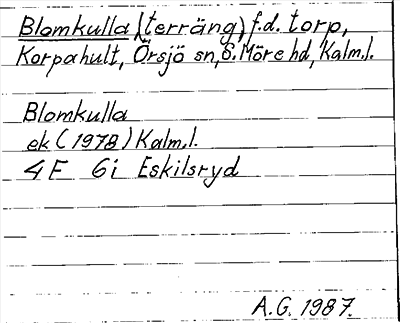 Blomkulla (terräng) f.d. torp,
Korpahult, Örsjö sn, S. Möre hd, Kalm.l.
Blomkulla
ek (1978) Kalm.l.
4 F 6i Eskilsryd
A.G. 1987.